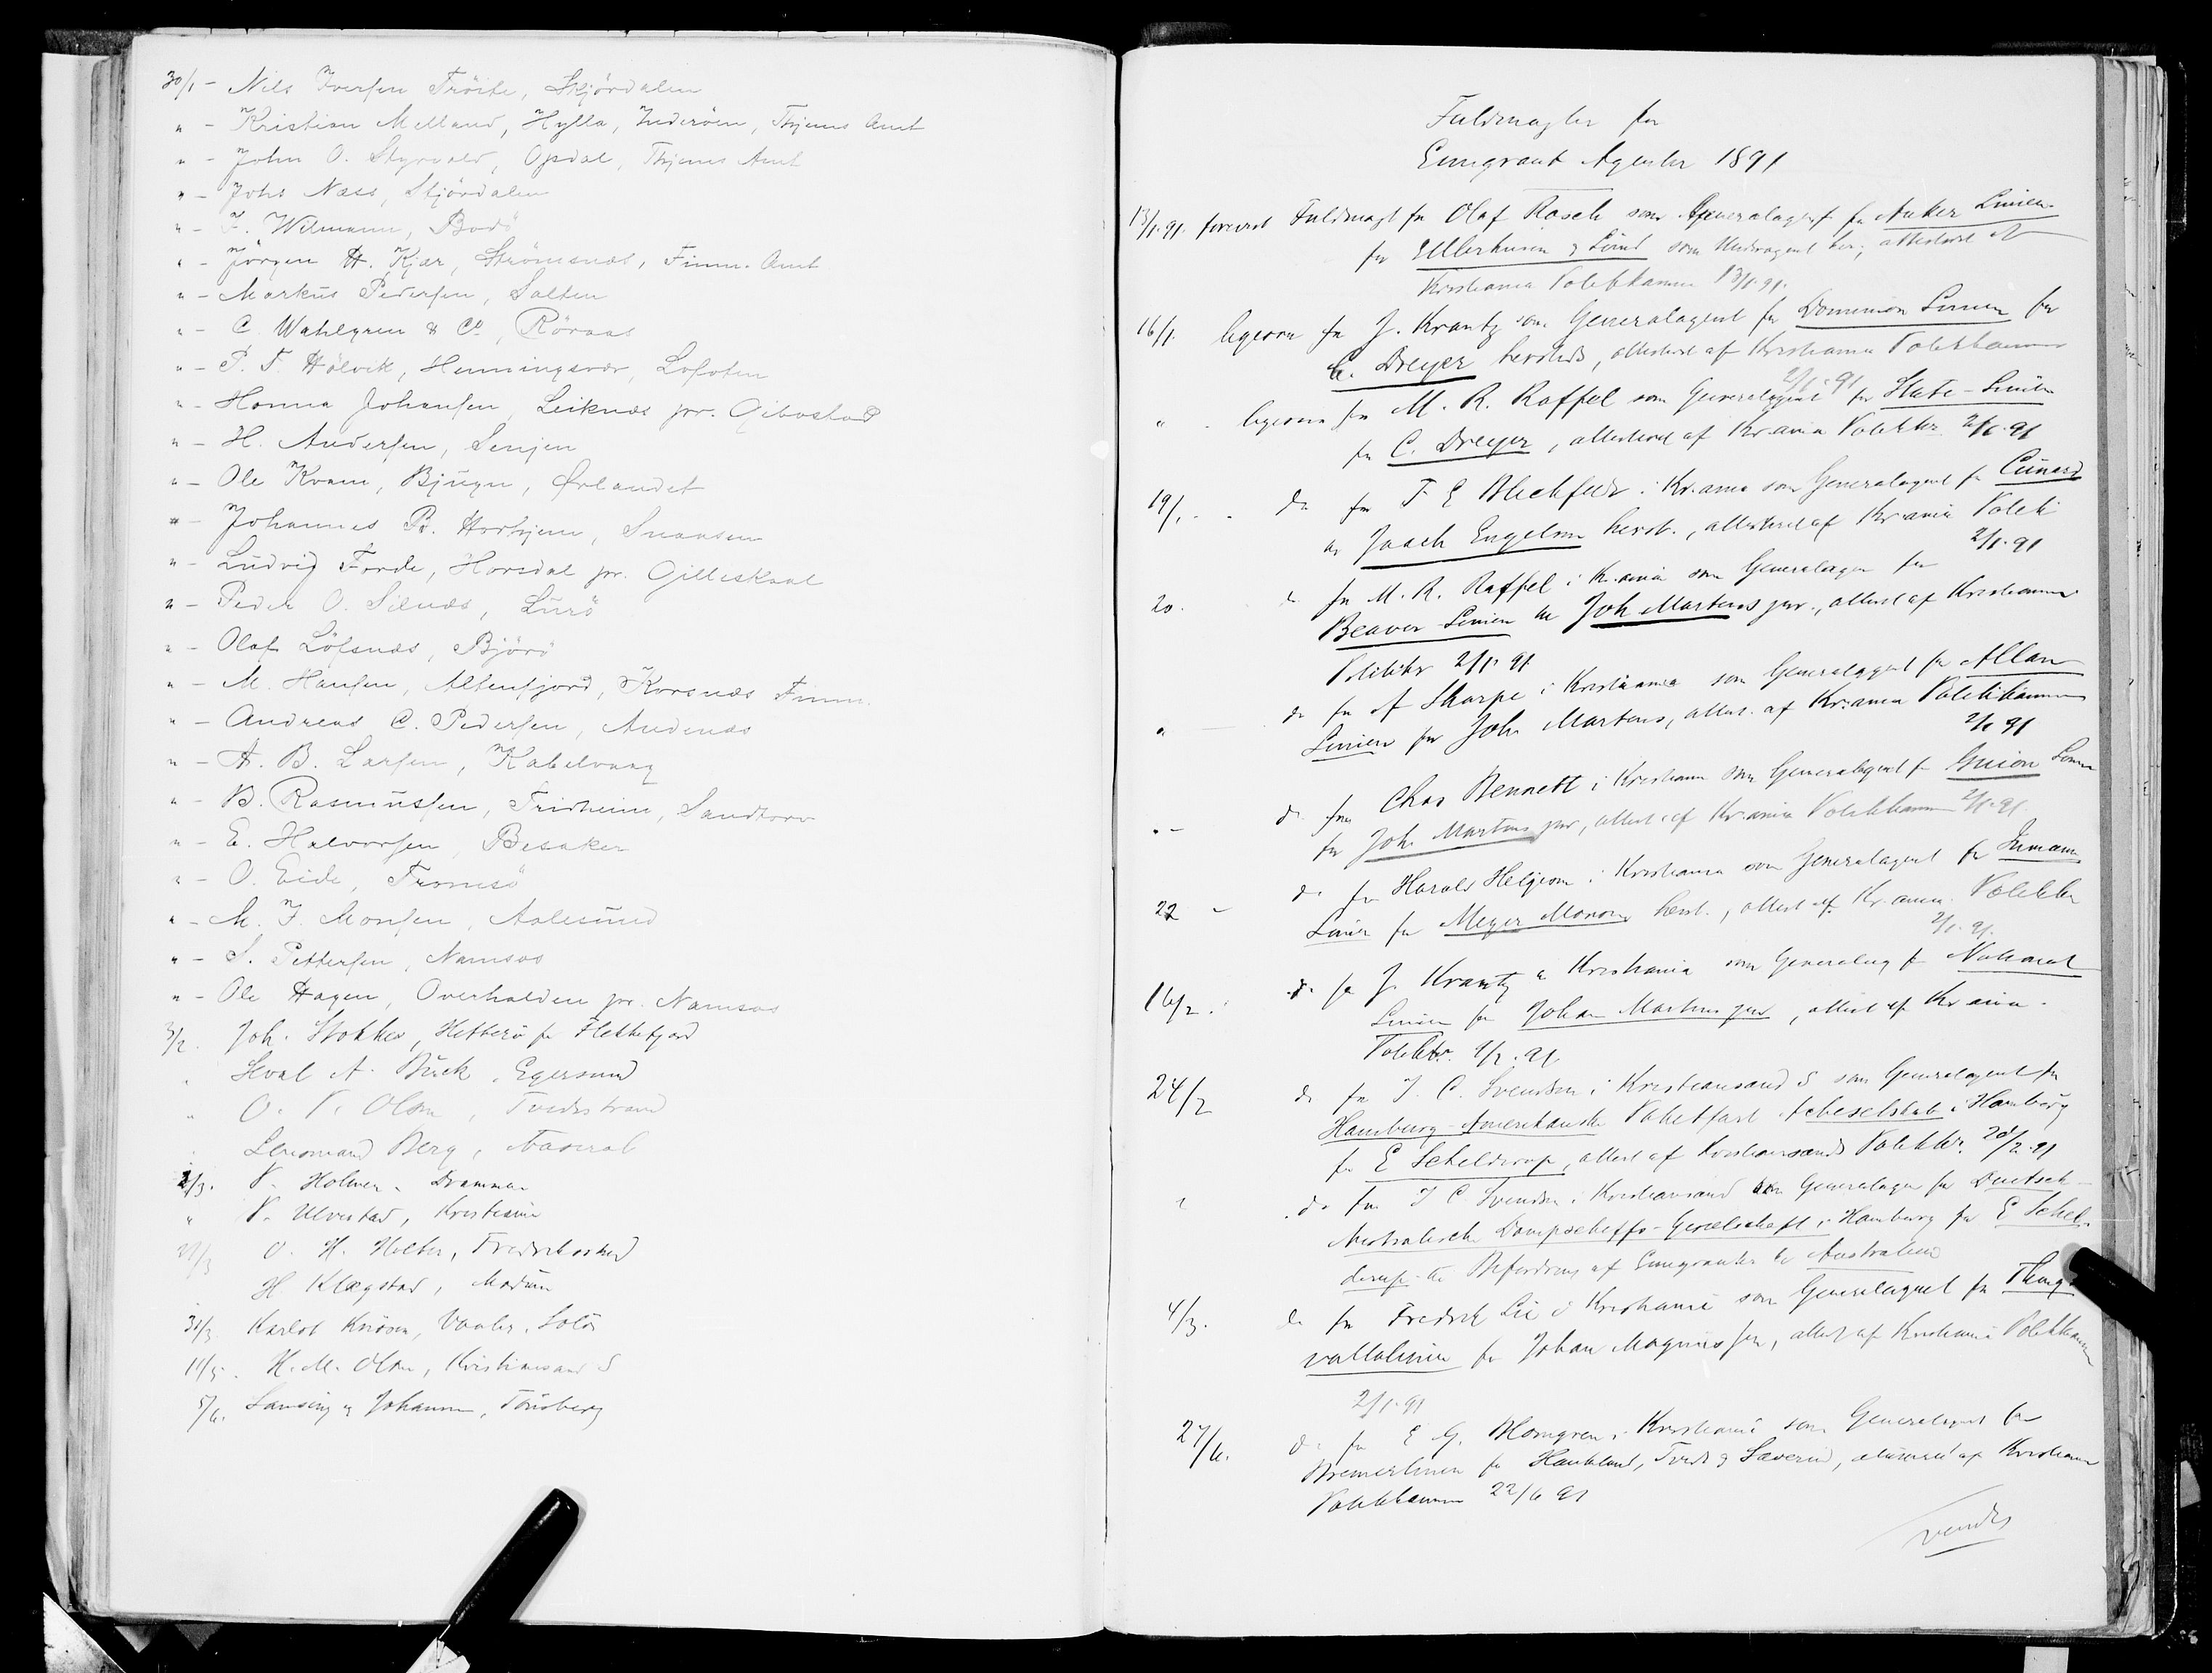 30/1 - Nils Iversen Tröite, Skjördalen
" - Kristian Melland, Hylla, Inderöen, Thjems Amt
" - John O. Styrvold, Opdal, Thjems Amt
" - Johs Næss, Stjördalen
" - F. Wilmann, Bodö
" - Jörgen H. Kjær, Strömsnæs, Finm. Amt
" - Markus Pedersen, Salten
" - C. Wahlgren & Co, Röraas
" - P. F. Hölvik, Henningsvær, Lofoten
" - Hanna Johansen, Leiknæs pr. Gibostad
" - H. Andersen, Senjen
" - Ole Kvam, Bjugn, Ørlandet
" - Johannes P. , Snaasen
" - Ludvig Forde, Horsdal pr. Gilleskaal
" - Peder O. Silnæs, Lurö
" - Olaf Löfsnæs, Björö
" - M. Hansen, Altenfjord, Korsnæs Finm.
" - Andreas C. Pedersen, Andenæs
" - A. B. Larsen, Kabelvaag
" - B. Rasmussen, Fridheim, Sandtorv
" - E. Halvorsen, Besaker
" - O. Eide, Tromsö
" - M. J. Monsen, Aalesund
" - S. Pettersen, Namsos
" - Ole Hagen, Overhalden pr. Namsos
3/2. Joh. Stokke, Hetterö pr Flekkefjord
" A. Buch, Egersund
" O. V. Olsen, Tvedestrand
" Lensmand Berg, Aaseral
2/3. V. Holmen, Drammen
" V. Ulvestad, Kristiania
21/3 O. H. Holter, Fredrikstad
H. Klægstad, Modum
31/3 Karlot Knösen, Vaaler, Solör
11/5. H. M. Olsen, Kristiansand S
5/6. Lansing og Johannsen, Tönsberg
Fuldmagter for
Emigrant Agenter 1891
13/1.91. forevist Fuldmagt fra Olaf Rasch som Generalagent for Anker Linien
for Ellerhusen & Lund som Underagent her, attesteret af
Kristiania Politikammer 13/1.91.
16/1. ligesaa fra J. Krantz som Generalagent for Dominion Linien for
C. Dreyer hersteds, attesteret af Kristiania Politikammer
2/1 91
" - ligesaa fra M. R. Raffel som Generalagent for State-Linien
for C. Dreyer, attesteret af Kr.ania Politikr 2/1.91
19/1 - - do fra F E Blichfeldt i Kr.ania som Generalagent for Cunard
til Jaach Engelsen herst., attesteret af Kr.ania Politik
2/1.91
20. do fra M. R. Raffel i Kr.ania som Generalagen for
Beaver Linien til Joh Martens jnr., attest af Kristiania
Politikr 2/1.91
" - do fra A Sharpe i Kristiania som Generalagent for Allan
Linien for Joh. Martens, attest. af Kr.ania Politikammer
2/1 91
" - do fra Chas Bennett i Kristiania som Generalagent for Guion Linien
for Joh. Martens jnr, attest af Kr.ania Politikammer 2/1.91
22 - do fra Harald Helgesen i Kristiania som Generalagent for Inman
Linien for Meyer Monsen herst., attest af Kr.ania Politikr
2/1.91.
16/2. do fra J. Krantz i Kristiania som Generalag for National
Linien for Johan Martens jnr, attest af Kr.ania
Politikr. 9/2.91.
24/2 do fra J. C. Svendsen i Kristiansand S som Generalagent for
Hamburg-Amerikanske Paketfart Actieselskab i Hamburg
for E Scheldrup, attest af Kristiansands Politikr. 20/2.91
" do fra J C. Svendsen i Kristiansand som Generalagen for Deutsch-
Australische Dampschiffs-Gesellschaft i Hamburg for E Schel-
derup til Befordring af Emigranter til Australien
4/3. do fra Fredrik Lie i Kristiania som Generalagent for Thing-
vallalinien for Johan Magnus , attest af Kristiania Politikammer
2/1.91
27/6. do fra E G. Blomgren i Kristiania som Generalagent for
Bremerlinien for Haukland, Tvedt & Sæverud, af Kristiania
Politikammer 22/6 91
vendes